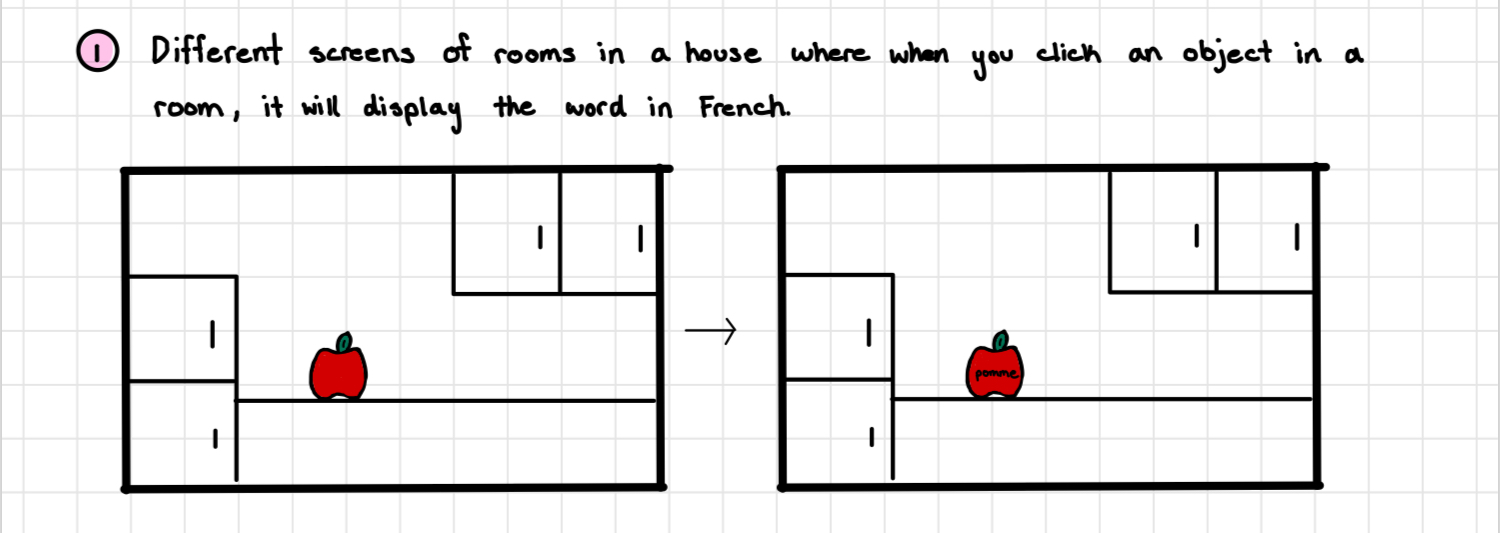 1 Different screens of rooms in a house where when you click an object in a
room, it will display the word in French.
pomme